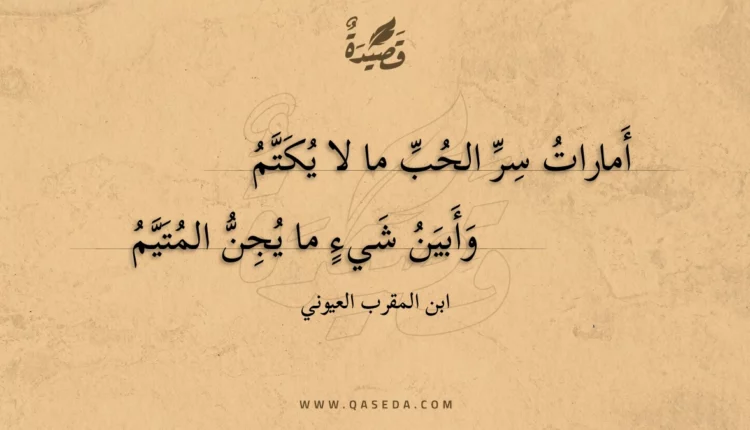 قَصِيدَةٌ
أَماراتُ سِرِّ الحُبِّ ما لا يُكَتَّمُ
وَأَبيَنُ شَيءٍ ما يُجِنُّ المُتَيَّمُ
ابن المقرب العيوني
WWW.QASEDA.COM